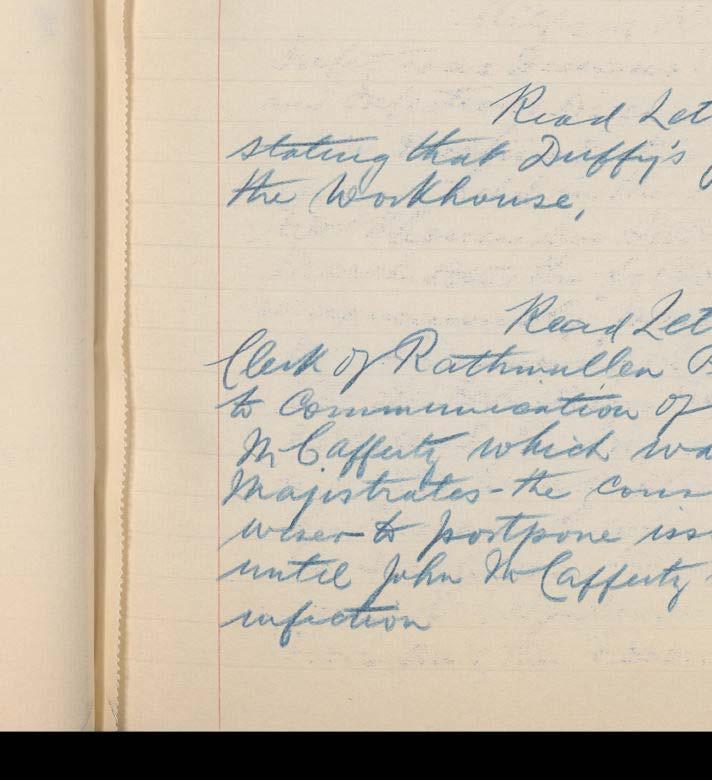 Read Let
stating that Duffy's
the Workhouse,
Read Let
Clerk of Rathmullen
to Communication of
McCafferty which wa
Magistrates - the cons
wiser to postpone iss
until John McCafferty
infection